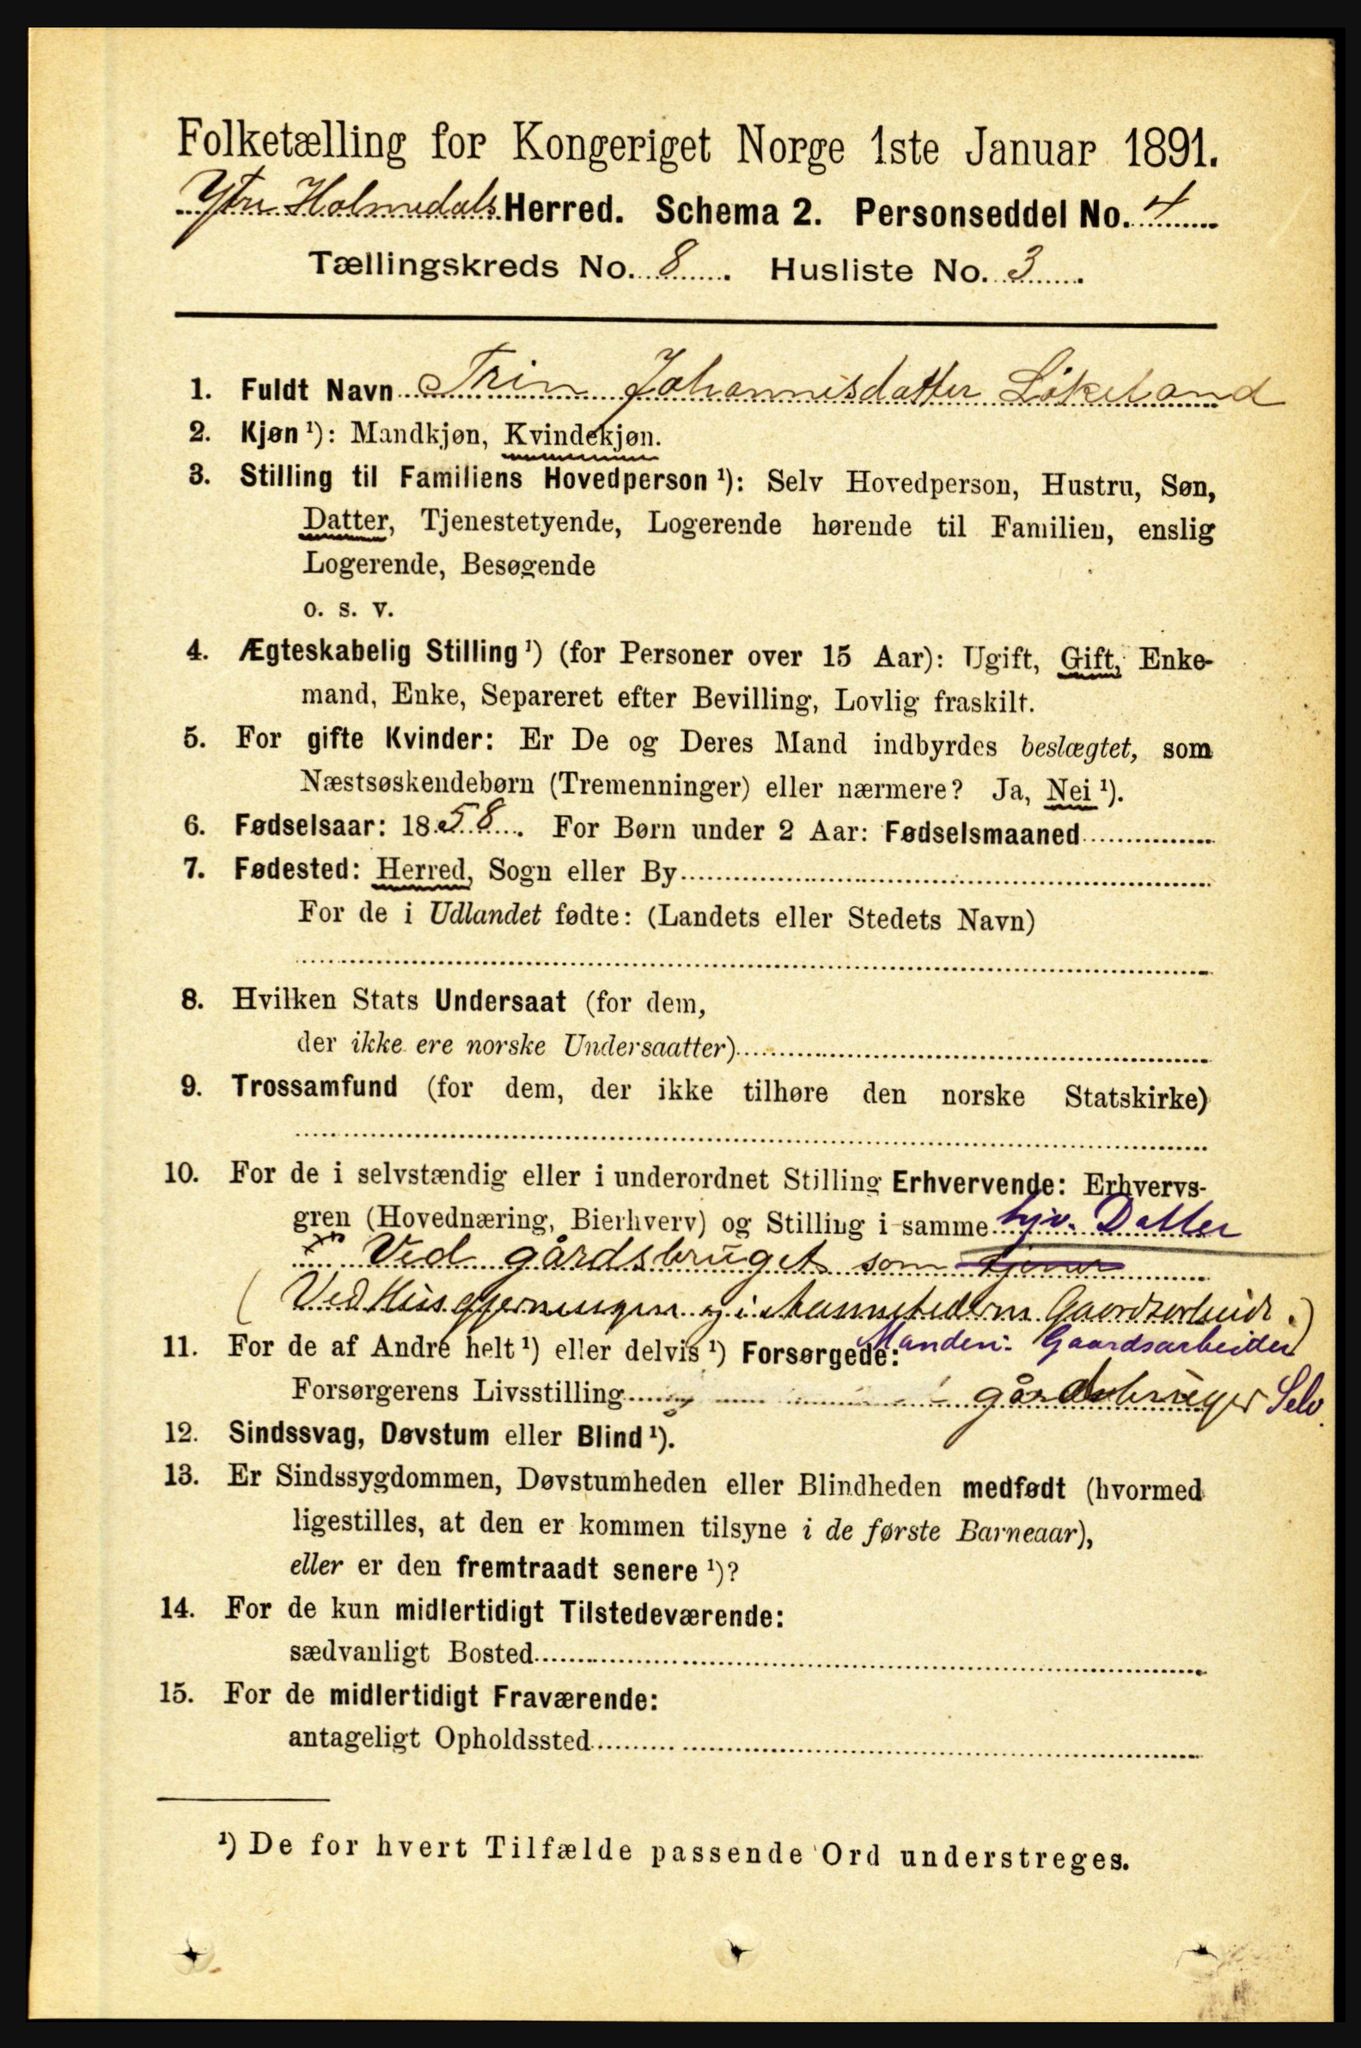 Folketælling for Kongeriget Norge 1ste Januar 1891.
Ytre Holmedals Herred. Schema 2. Personseddel No. 4
Tællingskreds No. 8. Husliste No. 3.
1. Fuldt Navn Trin Johannesdatter Løkeland
2. Kjøn ¹): Mandkjøn, Kvindekjøn.
3. Stilling til Familiens Hovedperson ¹): Selv Hovedperson, Hustru, Søn,
Datter, Tjenestetyende, Logerende hørende til Familien, enslig
Logerende, Besøgende
o. s. v.
4. Ægteskabelig Stilling ¹) (for Personer over 15 Aar): Ugift, Gift, Enke-
mand, Enke, Separeret efter Bevilling, Lovlig fraskilt.
5. For gifte Kvinder: Er De og Deres Mand indbyrdes beslægtet, som
Næstsøskendebørn (Tremenninger) eller nærmere? Ja, Nei ¹).
6. Fødselsaar: 1858. For Børn under 2 Aar: Fødselsmaaned
7. Fødested: Herred, Sogn eller By
For de i Udlandet fødte: (Landets eller Stedets Navn)
8. Hvilken Stats Undersaat (for dem,
der ikke ere norske Undersaatter)
9. Trossamfund (for dem, der ikke tilhøre den norske Statskirke)
10. For de i selvstændig eller i underordnet Stilling Erhvervende: Erhvervs-
gren (Hovednæring, Bierhverv) og Stilling i samme hjv. Datter
Ved gårdsbruget som
(Ved Husgjerningen og i Gaardsarbeide.)
11. For de af Andre helt ¹) eller delvis ¹) Forsørgede: Manden: Gaardsarbeider
Forsørgerens Livsstilling gårdbruger Selv.
12. Sindssvag, Døvstum eller Blind ¹).
13. Er Sindssygdommen, Døvstumheden eller Blindheden medfødt (hvormed
ligestilles, at den er kommen tilsyne i de første Barneaar),
eller er den fremtraadt senere ¹)?
14. For de kun midlertidigt Tilstedeværende:
sædvanligt Bosted
15. For de midlertidigt Fraværende:
antageligt Opholdssted
¹) De for hvert Tilfælde passende Ord understreges.